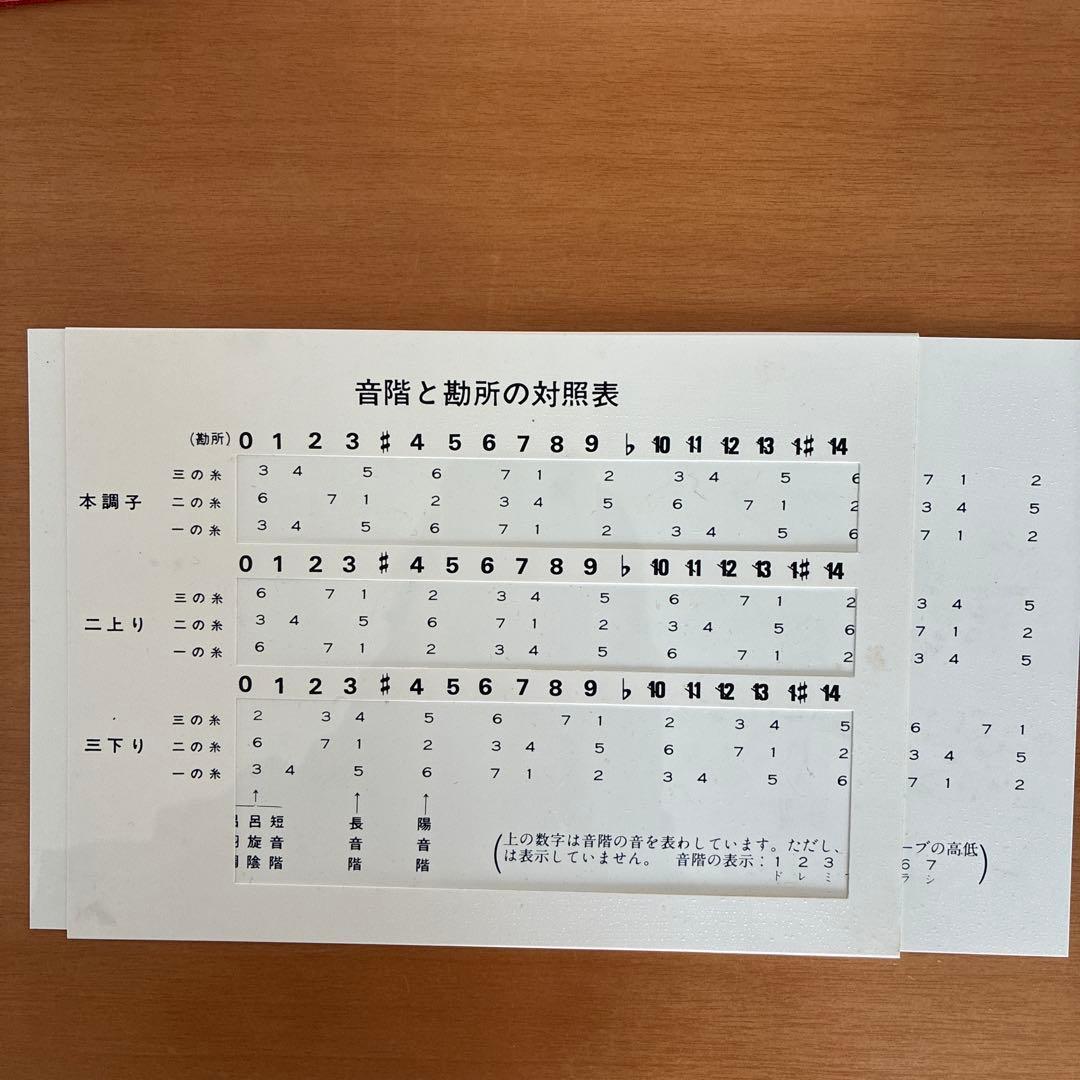 音階と勘所の対照表
(勘所) 0 1 2 3 ♯ 4 5 6 7 8 9 ♭ 10 11 12 13 1♯ 14
本調子
三の糸 3 4 5 6 7 1 2 3 4 5 6 7 1 2
二の糸 6 7 1 2 3 4 5 6 7 1 2 3 4 5
一の糸 3 4 5 6 7 1 2 3 4 5 6 7 1 2
0 1 2 3 ♯ 4 5 6 7 8 9 ♭ 10 11 12 13 1♯ 14
二上り
三の糸 6 7 1 2 3 4 5 6 7 1 2 3 4 5
二の糸 3 4 5 6 7 1 2 3 4 5 6 7 1 2
一の糸 6 7 1 2 3 4 5 6 7 1 2 3 4 5
0 1 2 3 ♯ 4 5 6 7 8 9 ♭ 10 11 12 13 1♯ 14
三下り
三の糸 2 3 4 5 6 7 1 2 3 4 5 6 7 1
二の糸 6 7 1 2 3 4 5 6 7 1 2 3 4 5
一の糸 3 4 5 6 7 1 2 3 4 5 6 7 1 2
呂旋陰
短音階
長音階
陽音階
(上の数字は音階の音を表わしています。ただし、 ーブの高低
は表示していません。 音階の表示: 1 2 3 6 7)
ド レ ミ ラ シ